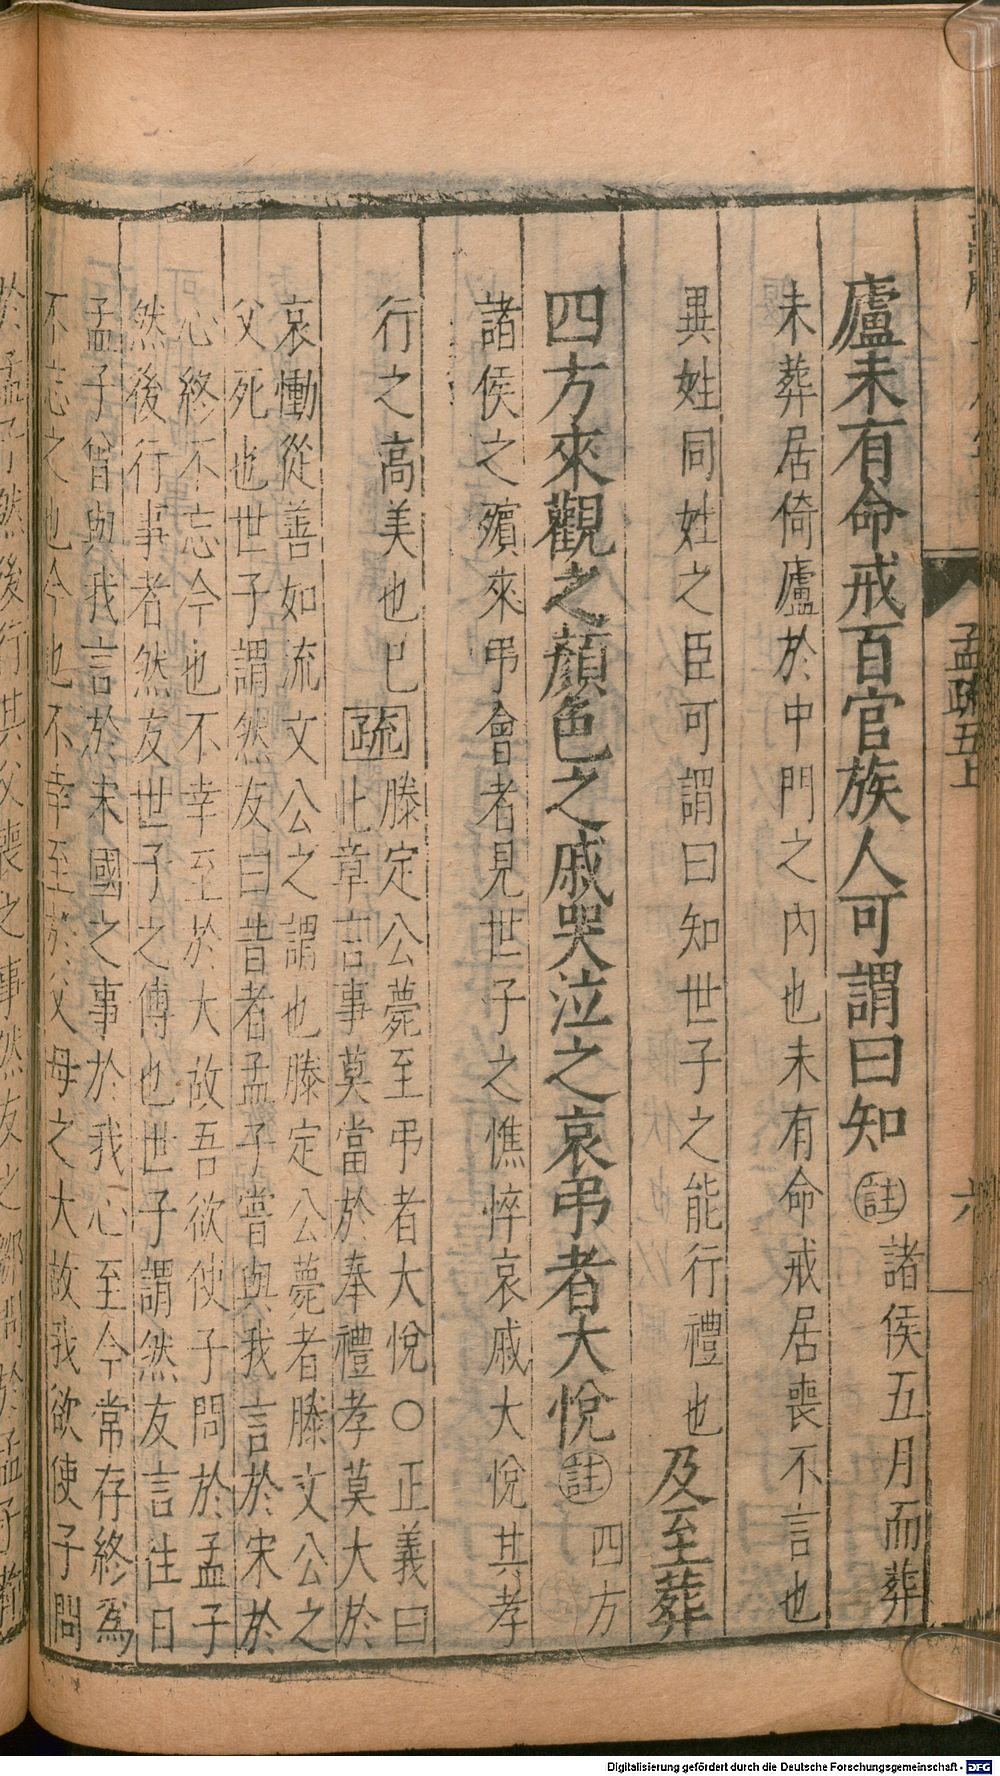 廬未有命戒百官族人可謂曰知㊟諸侯五月而葬
未葬居倚廬於中門之內也未有命戒居喪不言也
異姓同姓之臣可謂曰知世子之能行禮也及至葬
四方來觀之顏色之戚哭泣之哀弔者大悅㊟四方
諸侯之賓來弔會者見世子之憔悴哀戚大悅其孝
行之高美也已疏滕定公薨至弔者大悅○正義曰
此章言事莫當於奉禮孝莫大於
哀慟從善如流文公之謂也滕定公薨者滕文公之
父死也世子謂然友曰昔者孟子嘗與我言於宋於
心終不忘今也不幸至於大故吾欲使子問於孟子
然後行事者然友世子之傅也世子謂然友言往日
孟子嘗與我言於宋國之事於我心至今常存終為
不忘之也今也不幸至於父母之大故我欲使子問
孟疏五上
六
Digitalisierung gefördert durch die Deutsche Forschungsgemeinschaft - DFG